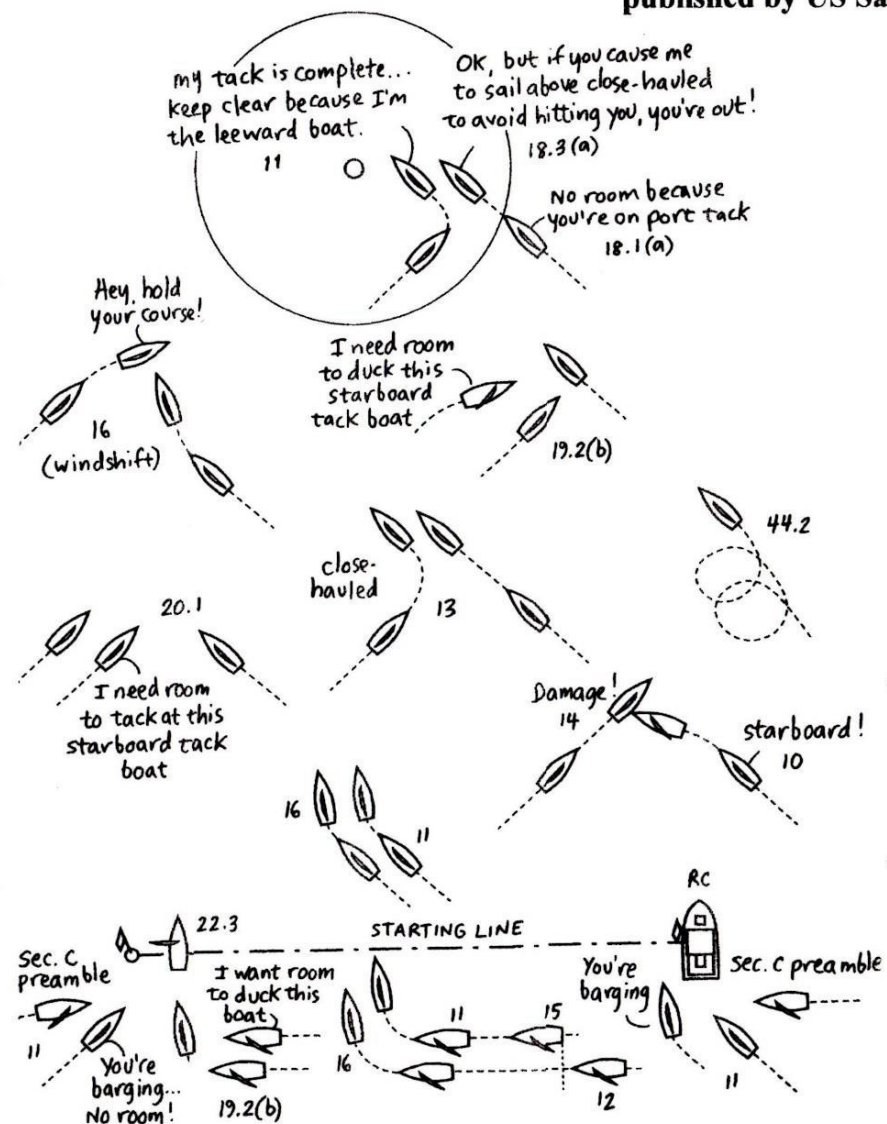 published by US Sa
my tack is complete...
keep clear because I'm
the leeward boat.
11
OK, but if you cause me
to sail above close-hauled
to avoid hitting you, you're out!
18.3(a)
No room because
you're on port tack
18.1(a)
Hey, hold
your course!
16
(windshift)
I need room
to duck this
starboard
tack boat
19.2(b)
close-
hauled
13
44.2
20.1
I need room
to tack at this
starboard tack
boat
Damage!
14
starboard!
10
16
11
22.3
STARTING LINE
RC
Sec. C
preamble
11
You're
barging...
No room!
I want room
to duck this
boat
19.2(b)
16
11
15
12
You're
barging
Sec. C preamble
11